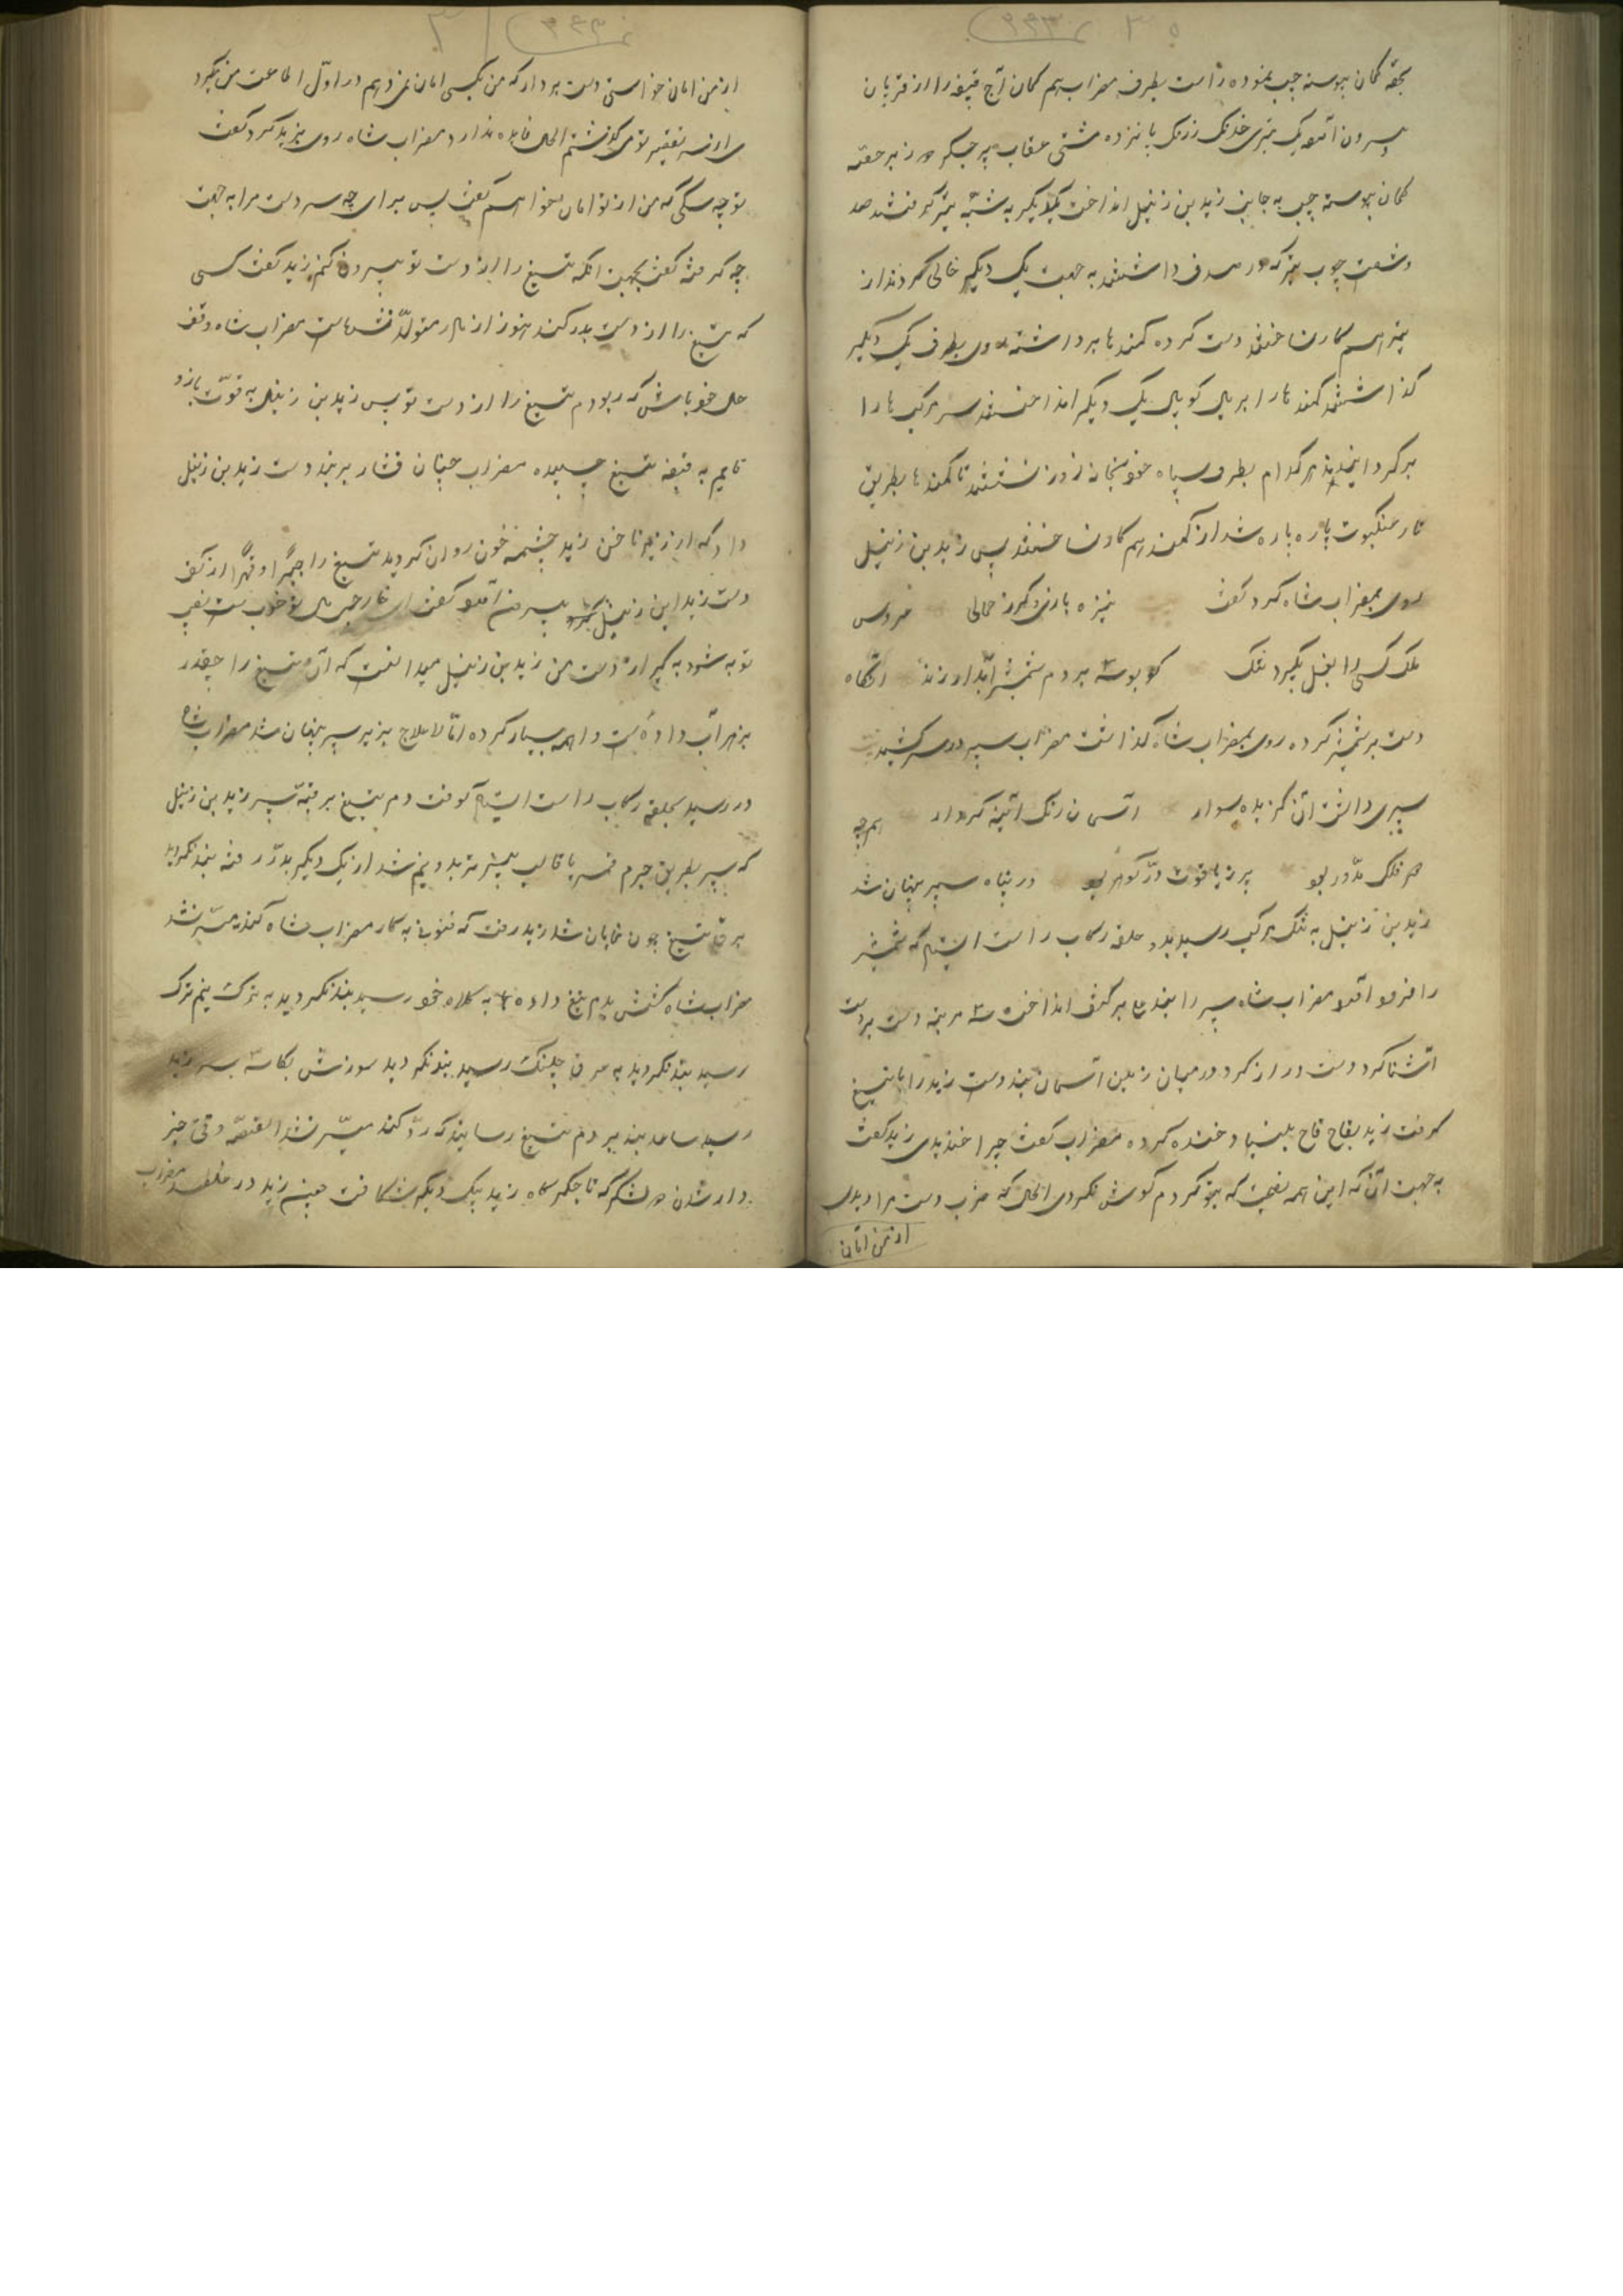 بقه کمان پیوسته چپ نموده راست بطرف مضراب هم کمان آج قبضه را از قربان
بیرون آمد یک تیری خدنگ زرنگ پانزده مشتی عقاب پر جگر در زیر حقه
کمان پیوسته چپ به جانب زید بن زنپیل انداخت یکدیگر به شیبه تیر گرفتند صد
و شصت چوب تیر که در صدف داشتند به جهت یک دیگر خالی کردند از
تیر هم کار نساختند دست کرده کمندها برداشته روی بطرف یک دیگر
گذاشتند کمندها را بر یال کوپال یک دیگر انداختند سر مرکب ها را
برگردانیدند هر کدام بطرف سپاه خود چنان زور نشستند تا کمندها بطریق
تار عنکبوت پاره پاره شد از کمند هم کار نساختند پس زید بن زنپیل
روی بمضراب شاه کرد گفت نیزه بازی و گرز حمالی
ملک کسی را بغل بگیرد تنگ که بوسه بر دم شمشیر آبدار زند آنگاه
دست بر شمشیر کرده روی بمضراب شاه گذاشت مضراب سپر در سر کشید
سپری داشت آن گزیده سوار آسمان رنگ آئینه کردار همچه
فلک مدور بود پر ز یاقوت در گوهر بود در پناه سپر پنهان شد
زید بن زنپیل به تنگ مرکب رسید بد و حلقه رکاب راست ایستاد که شمشیر
را فرود آمد مضراب شاه سپر را بند بر کتف انداخت سر پنجه دست بردست
آشنا کرد دست دراز کرد در میان زمین آسمان بند دست زید را با تیغ
گرفت زید بقاح قاح بلند خنده کرده مضراب گفت چرا خندیدی زید گفت
به جهت آن که این همه نصیحت که بتو کردم گوش نکردی الحال که ضرب دست مرا دیدی
از من امان
از من امان خواستی دست بردار که من بکسی امان نمی دهم در اول اطاعت من میکرد
ی از سر تقصیر تو می گذشتم الحال فایده ندارد مضراب شاه روی بزید کرد گفت
تو چه سگی که من از تو امان بخواهم گفت پس برای چه سر دست مرا به جهت
چه گرفته گفت بجهت آنکه تیغ را از دست تو بیرون کنم زید گفت کسی
که تیغ را از دست بدر کند هنوز از مادر متولد نشده است مضراب شاه گفت
حال خود باش که ربودم تیغ را از دست تو پس زید بن زنپیل به قوت بازو
تمام به قبضه تیغ چسپیده مضراب چنان فشار بر بند دست زید بن زنپیل
داد که از زیر ناخن زید چشمه خون روان گردید تیغ را جبراً و قهراً از کف
دست زید ابن زنپیل بیرون آمد گفت ای خارجی مال خوب است نصیب
تو به شود به گیر از دست من زید بن زنپیل میدانست که آن تیغ را چقدر
بزهر آب داده است واهمه بسیار کرده اما لاعلاج بزیر سپر پنهان شد مضراب شاه
در رسید بحلقه رکاب راست ایستاد گرفت دم تیغ بر قبه سپر زید بن زنپیل
که سپر بطریق جرم قمر یا قالب پنیر تر بدو نیم شد از یک دیگر بدر رفته بند نگردید
برق تیغ چون نمایان شد زید رفت که فنونی به کار مضراب شاه کند میسر نشد
مضراب شاه کشش بدم تیغ داده تا به کلاه خود رسید بند نگردید به ترک نیم ترک
رسید بند نگردید به عرق چینک رسید بند نگردید سوزش بکاسه سر زید
رسید ساعد بند بر دم تیغ رسانید که رد کند میسر نشد القصه وقتی خبر
دار شدن در لشکر که تا جگر گاه زید بیک دیگر شکافت چنین زید در غلطید مضراب